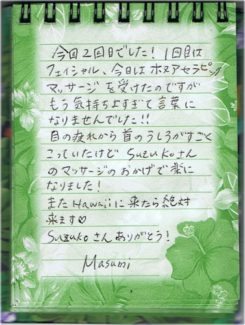 今回2回目でした！1回目は
フェイシャル、今日はホヌアセラピー
マッサージを受けたのですが
もう気持ちよすぎて言葉に
なりませんでした!!
目の疲れから首のうしろがすごく
こっていたけどSuzukoさん
のマッサージのおかげで楽に
なりました！
またHawaiiに来たら絶対
来ます♡
Suzukoさんありがとう！
Masumi